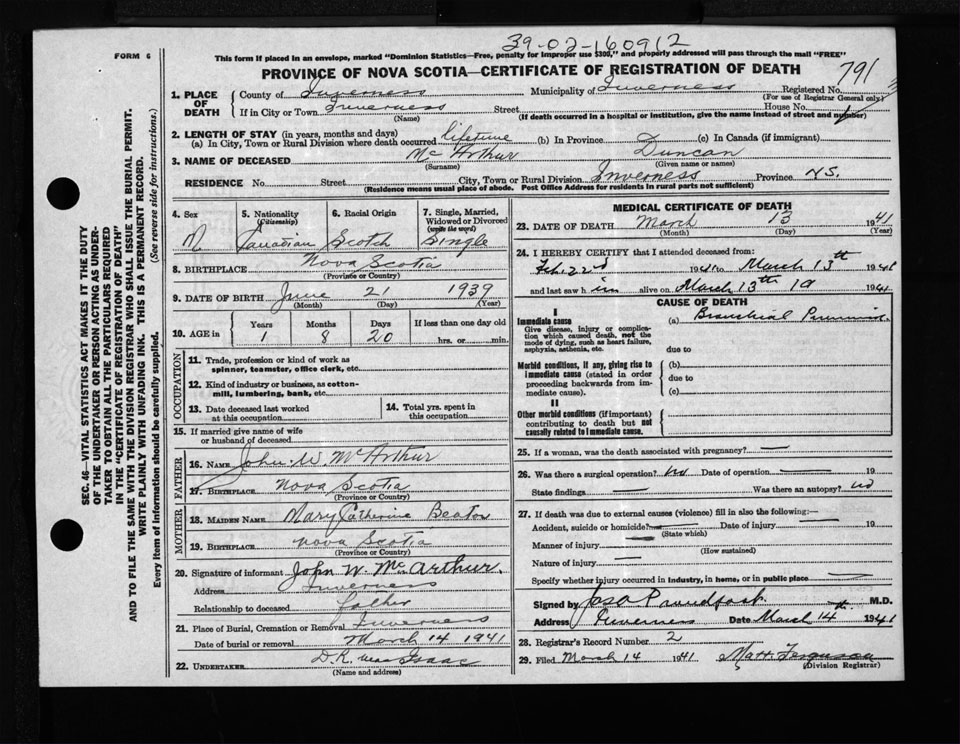 39-02-160912
FORM 6
This form if placed in an envelope, marked "Dominion Statistics—Free, penalty for improper use $300," and properly addressed will pass through the mail "FREE"
PROVINCE OF NOVA SCOTIA—CERTIFICATE OF REGISTRATION OF DEATH
791
1. PLACE OF DEATH
County of Inverness Municipality of Inverness Registered No.
(For use of Registrar General only)
If in City or Town Inverness Street House No.
(Name) (If death occurred in a hospital or institution, give the name instead of street and number)
2. LENGTH OF STAY (in years, months and days)
(a) In City, Town or Rural Division where death occurred lifetime (b) In Province (c) In Canada (if immigrant)
3. NAME OF DECEASED McArthur Duncan
(Surname) (Given name or names)
RESIDENCE No. Street City, Town or Rural Division Inverness Province N.S.
(Residence means usual place of abode. Post Office Address for residents in rural parts not sufficient)
4. Sex 5. Nationality (Citizenship) 6. Racial Origin 7. Single, Married, Widowed or Divorced (write the word)
M Canadian Scotch Single
8. BIRTHPLACE Nova Scotia
(Province or Country)
9. DATE OF BIRTH June 21 1939
(Month) (Day) (Year)
10. AGE in Years Months Days If less than one day old
1 8 20 hrs. or min.
OCCUPATION
11. Trade, profession or kind of work as spinner, teamster, office clerk, etc.
12. Kind of industry or business, as cotton-mill, lumbering, bank, etc.
13. Date deceased last worked at this occupation
14. Total yrs. spent in this occupation
15. If married give name of wife or husband of deceased
FATHER
16. NAME John W. McArthur
17. BIRTHPLACE Nova Scotia
(Province or Country)
MOTHER
18. MAIDEN NAME Mary Catherine Beaton
19. BIRTHPLACE Nova Scotia
(Province or Country)
20. Signature of informant John W. McArthur.
Address Inverness
Relationship to deceased father
21. Place of Burial, Cremation or Removal Inverness
Date of burial or removal March 14 1941
22. UNDERTAKER D.R. MacIsaac
(Name and address)
MEDICAL CERTIFICATE OF DEATH
23. DATE OF DEATH March 13 1941
(Month) (Day) (Year)
24. I HEREBY CERTIFY that I attended deceased from:
1941 to March 13th 1941
and last saw him alive on March 13th 19 1941
CAUSE OF DEATH
I
Immediate cause
Give disease, injury or complication which caused death, not the mode of dying, such as heart failure, asphyxia, asthenia, etc.
(a)
due to
Morbid conditions, if any, giving rise to immediate cause (stated in order proceeding backwards from immediate cause).
(b)
due to
(c)
II
Other morbid conditions (if important) contributing to death but not causally related to immediate cause.
25. If a woman, was the death associated with pregnancy? —
26. Was there a surgical operation? no Date of operation — 19
State findings — Was there an autopsy? no
27. If death was due to external causes (violence) fill in also the following:—
Accident, suicide or homicide? — Date of injury — 19
(State which)
Manner of injury —
(How sustained)
Nature of injury —
Specify whether injury occurred in industry, in home, or in public place —
Signed by M.D.
Address Inverness Date March 14th 1941
28. Registrar's Record Number 2
29. Filed March 14 1941 Matt Ferguson
(Division Registrar)
SEC. 46—VITAL STATISTICS ACT MAKES IT THE DUTY
OF THE UNDERTAKER OR PERSON ACTING AS UNDER-
TAKER TO OBTAIN ALL THE PARTICULARS REQUIRED
IN THE "CERTIFICATE OF REGISTRATION OF DEATH"
AND TO FILE THE SAME WITH THE DIVISION REGISTRAR WHO SHALL ISSUE THE BURIAL PERMIT.
WRITE PLAINLY WITH UNFADING INK. THIS IS A PERMANENT RECORD.
Every item of information should be carefully supplied. (See reverse side for instructions.)